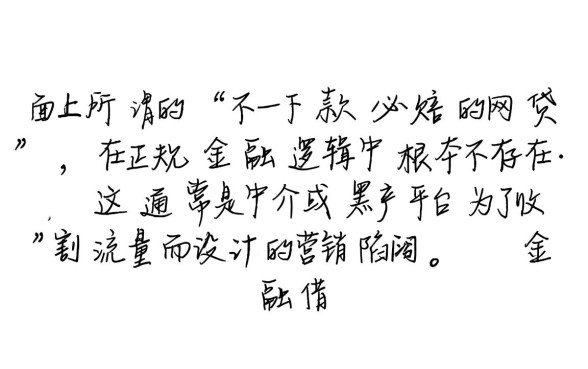 面上所谓的“不一下款必赔的网贷
”，在正规金融逻辑中根本不存在.
这通常是中介或黑产平台为了收
”割流量而设计的营销陷阔。 金
融借